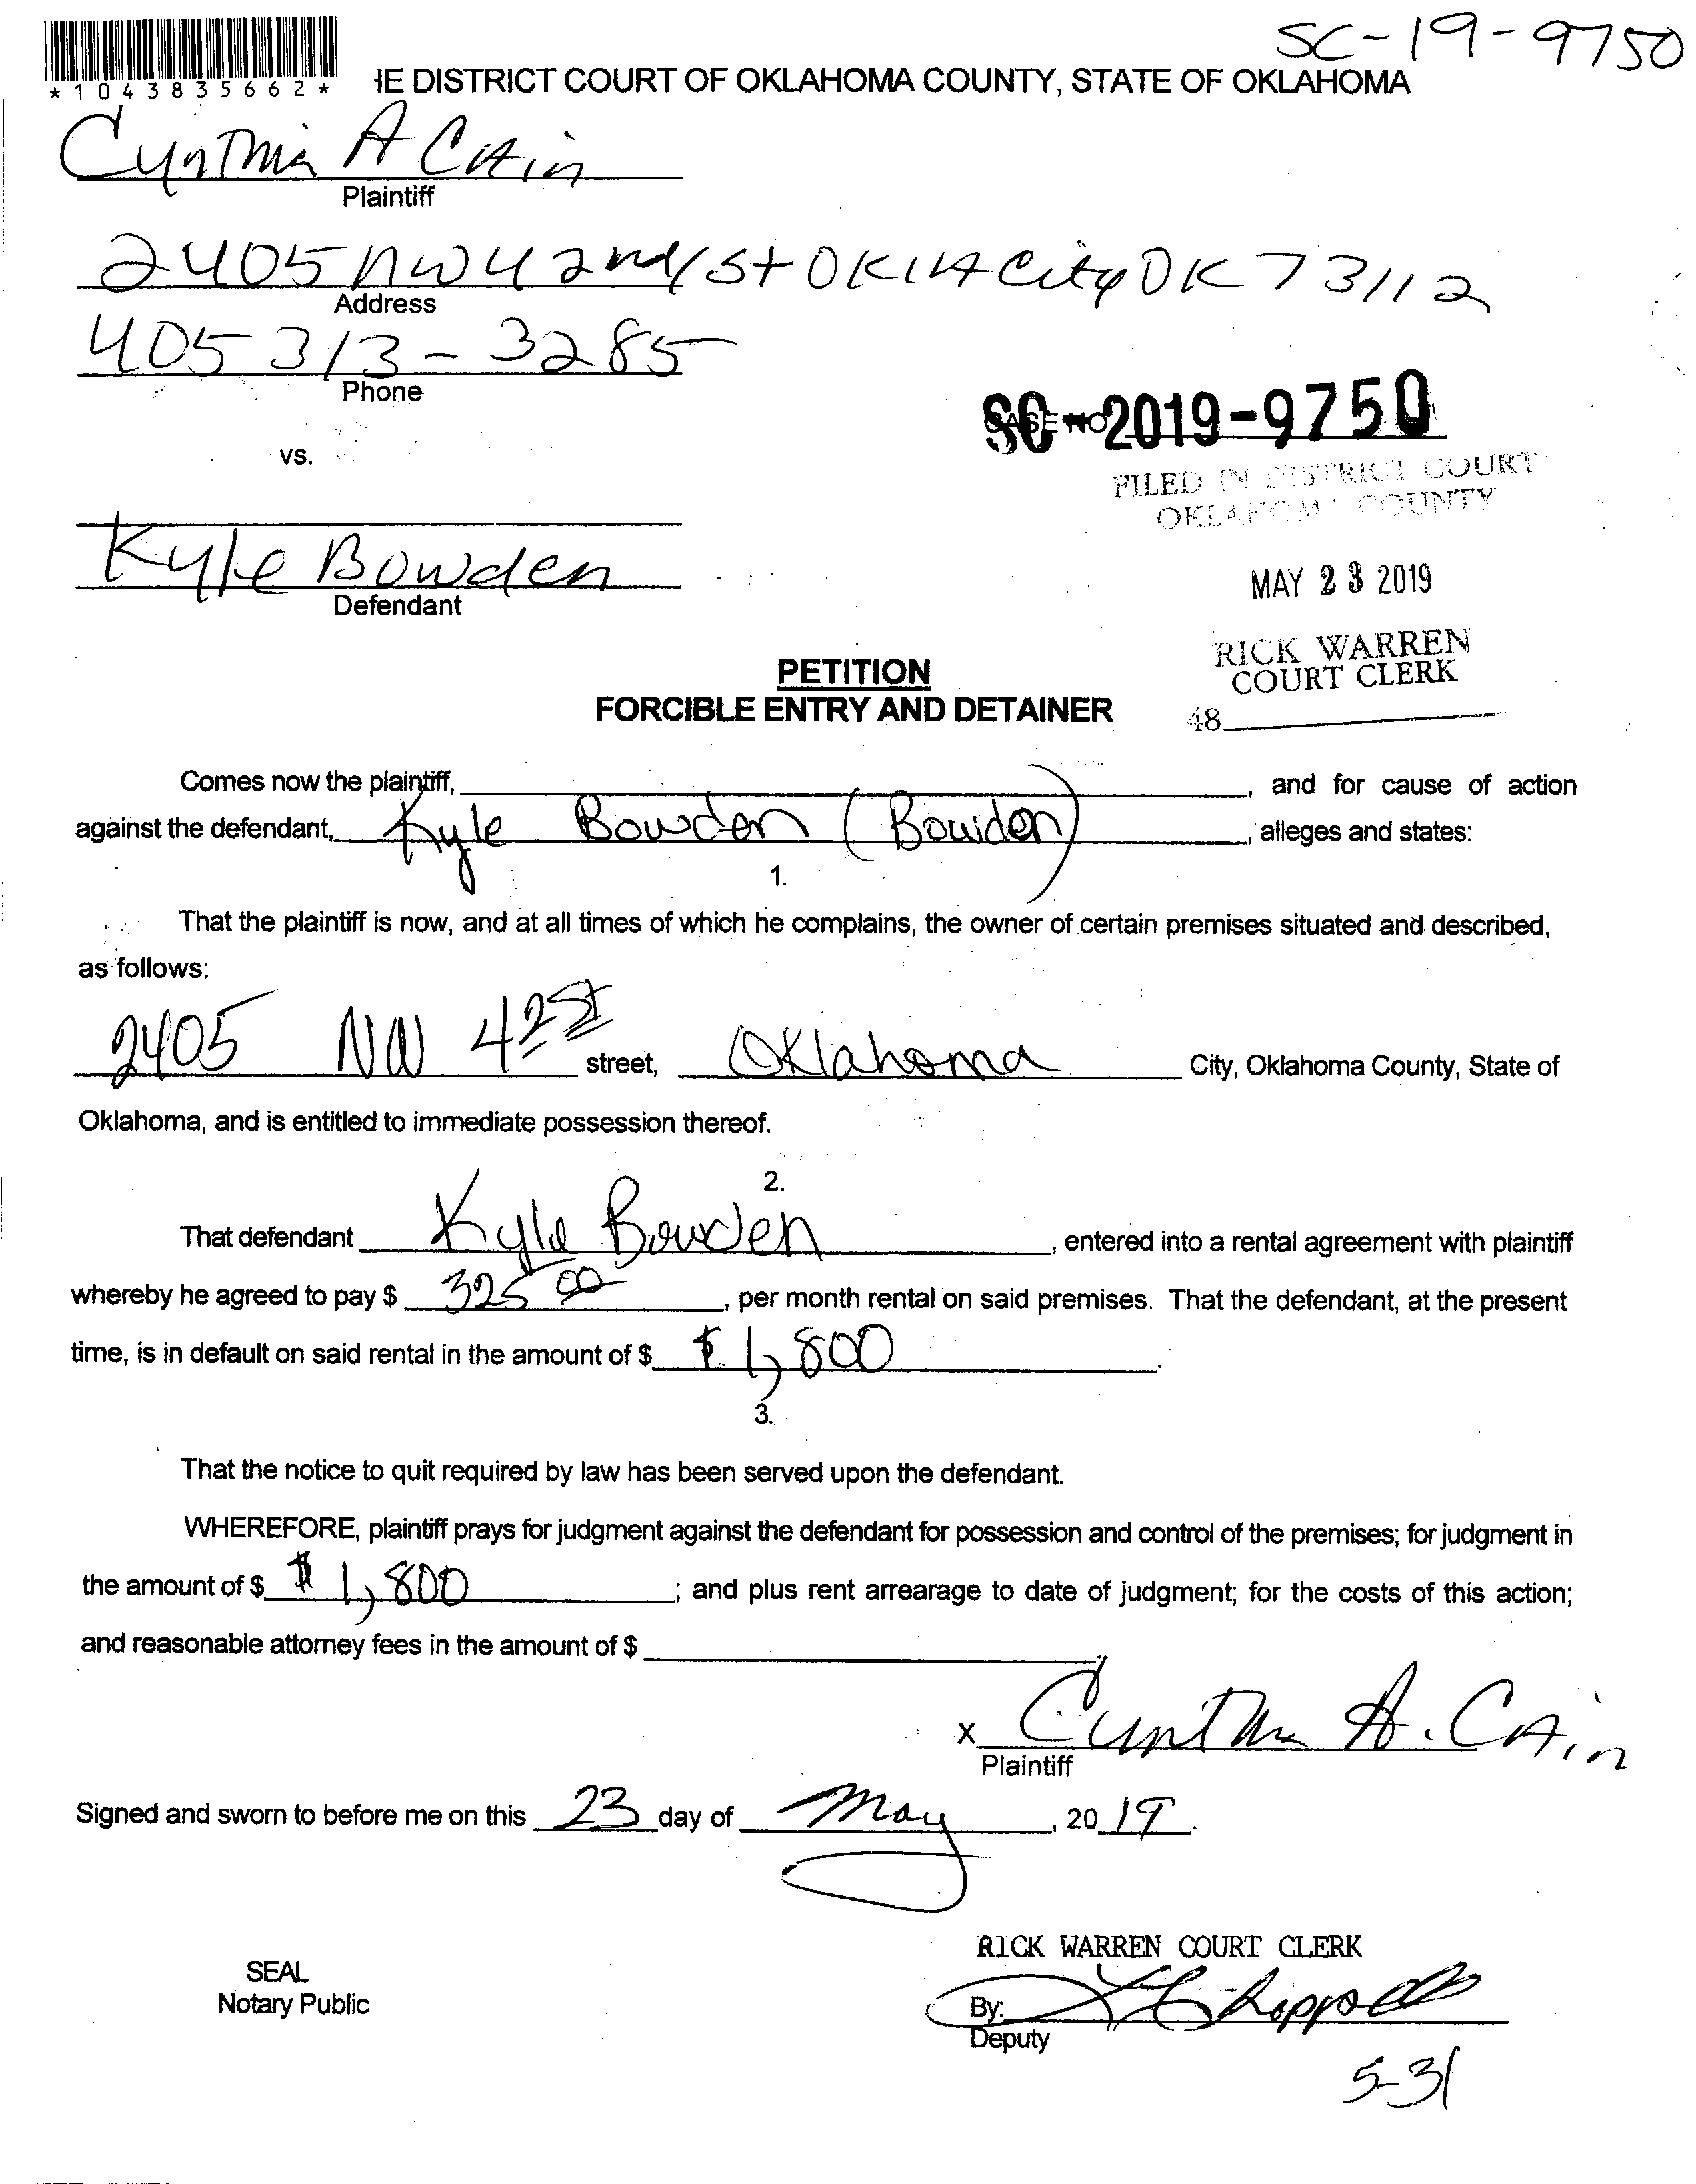 SC-19-9750
*1043835662*
IE DISTRICT COURT OF OKLAHOMA COUNTY, STATE OF OKLAHOMA
Cynthia A CAin
Plaintiff
2405 NW 42nd St OKlA City OK 73112
Address
405 313-3285
Phone
SC-2019-9750
vs.
FILED IN DISTRICT COURT
OKLAHOMA COUNTY
Kyle Bowden
Defendant
MAY 23 2019
RICK WARREN
COURT CLERK
48
PETITION
FORCIBLE ENTRY AND DETAINER
Comes now the plaintiff, , and for cause of action
against the defendant, Kyle Bowden (Bowden) , alleges and states:
1.
That the plaintiff is now, and at all times of which he complains, the owner of certain premises situated and described,
as follows:
2405 NW 42st street, Oklahoma City, Oklahoma County, State of
Oklahoma, and is entitled to immediate possession thereof.
2.
That defendant Kyle Bowden , entered into a rental agreement with plaintiff
whereby he agreed to pay $ 325 00 , per month rental on said premises. That the defendant, at the present
time, is in default on said rental in the amount of $ $ 1,800 .
3.
That the notice to quit required by law has been served upon the defendant.
WHEREFORE, plaintiff prays for judgment against the defendant for possession and control of the premises; for judgment in
the amount of $ $ 1,800 ; and plus rent arrearage to date of judgment; for the costs of this action;
and reasonable attorney fees in the amount of $
x Cynthia A. CAin
Plaintiff
Signed and sworn to before me on this 23 day of May , 20 19 .
RICK WARREN COURT CLERK
SEAL
Notary Public
By:
Deputy
5-31